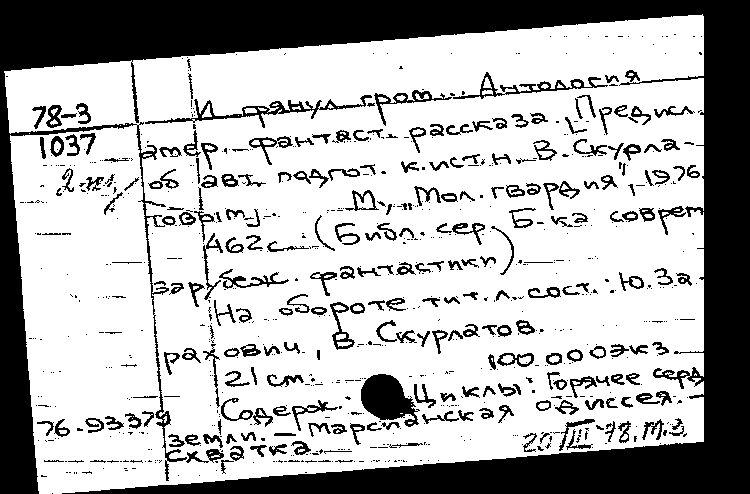 78-3
1037
2 экз.
И грянул гром... Антология
амер. фантаст. рассказа. [Предисл.
об авт. подгот. к.ист.н. В. Скурла-
товым].   М., „Мол. гвардия", 1976.
462 с. (Библ. сер. Б-ка соврем
зарубеж. фантастики).
На обороте тит. л. сост.: Ю. За-
рахович, В. Скурлатов.
21 см. 100 000 экз.
Содерж.: Циклы: Горячее серд
76-93379
земли. – Марсианская одиссея. –
схватка.
20/III-78. М.З.